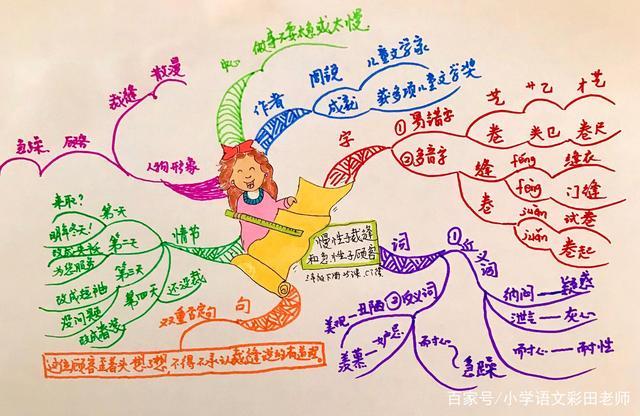 慢性子裁缝
和急性子顾客
中心
做事不要太急或太慢
作者
周锐
儿童文学家
成就
获多项儿童文学奖
字
①易错字
艺
艹乙
才艺
卷
类巳
卷尺
②多音字
缝
féng
缝衣
fèng
门缝
卷
juàn
试卷
juǎn
卷起
词
①近义词
纳闷——疑惑
泄气——灰心
耐心——耐性
②反义词
美观—丑陋
羡慕—妒忌
耐心—急躁
句
双重否定句
这位顾客歪着头想了想,不得不承认裁缝说的有道理。
情节
第一天
来取?
明年冬天!
第二天
为您服务
第三天
改成短袖
没问题
第四天
改成春装
还没裁
人物形象
裁缝
散漫
顾客
急躁
百家号/小学语文彩田老师